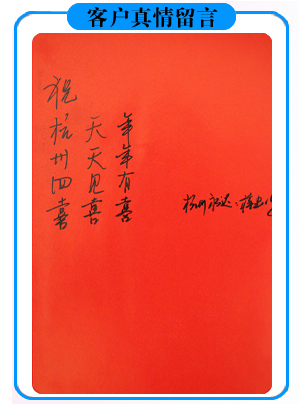 客户真情留言
祝杭州四喜
天天见喜
年年有喜
杭州